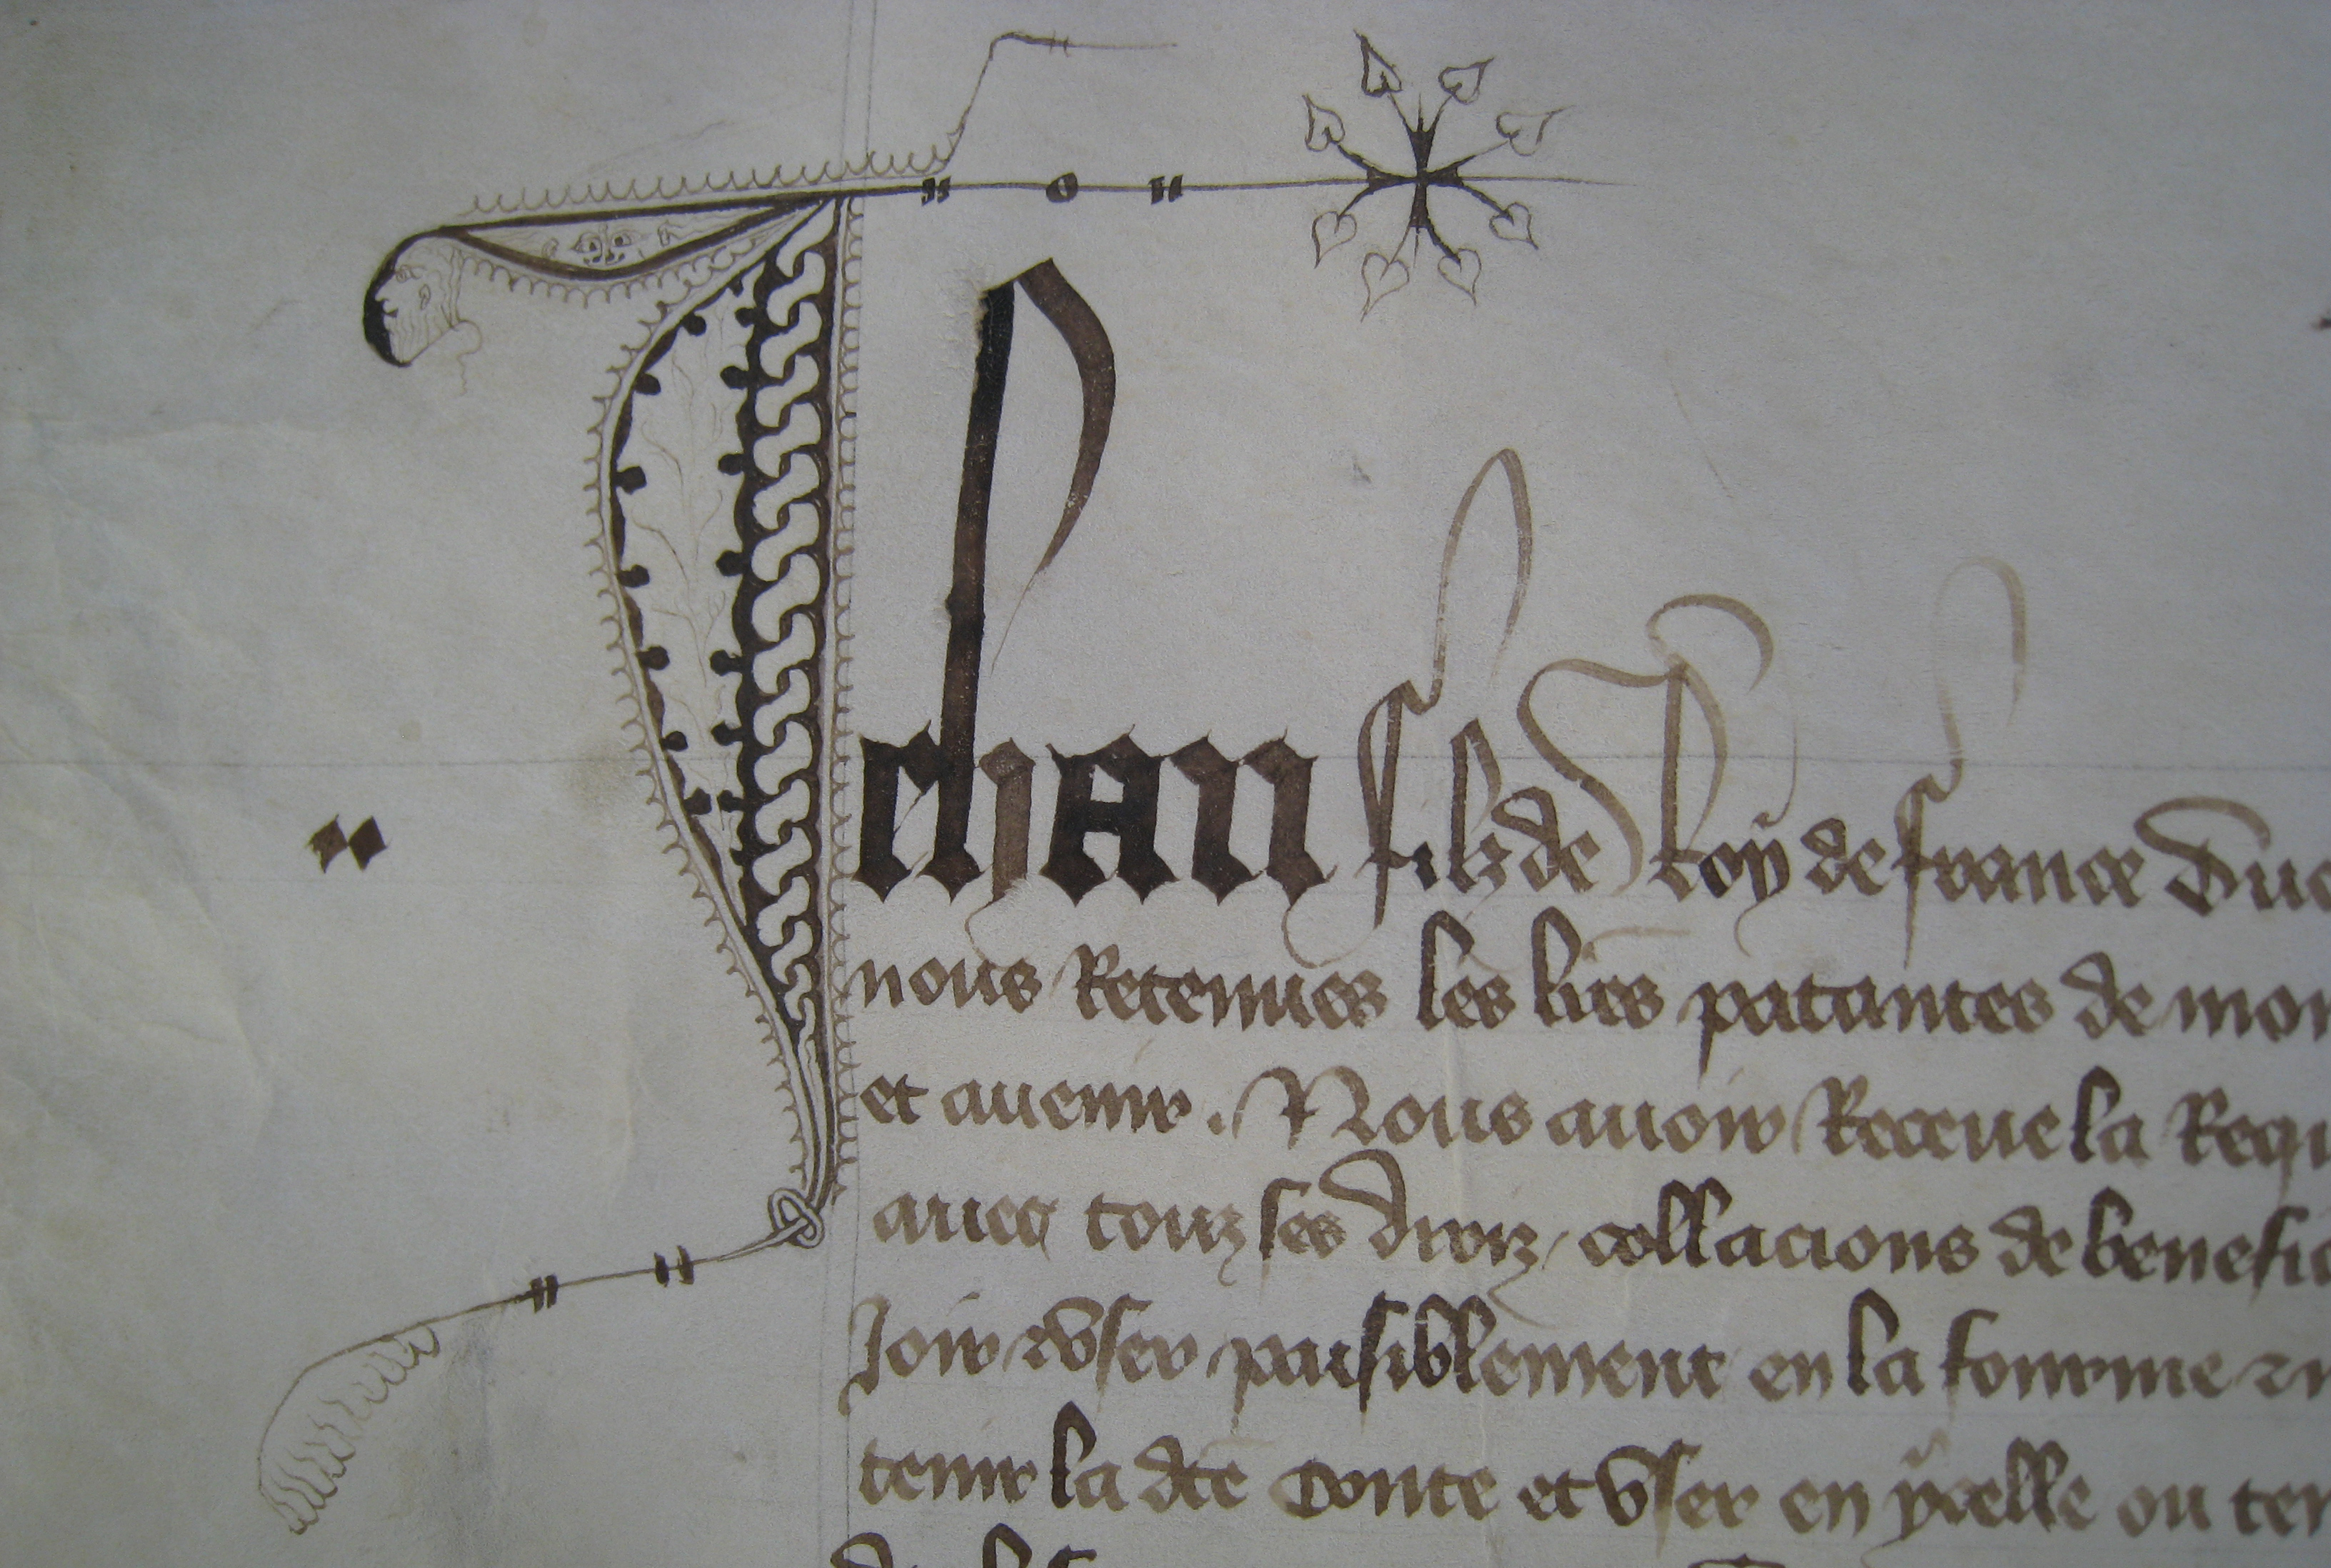 Jehan filz de Roy de france Duc
nous Retenues les lres patantes de mon
et auenir . Nous auoir Receue la Requ
auec touz ses droiz / collacions de benefic
Joir & vser paisiblement en la fourme &
tenir la dce Conte et vser en ycelle ou